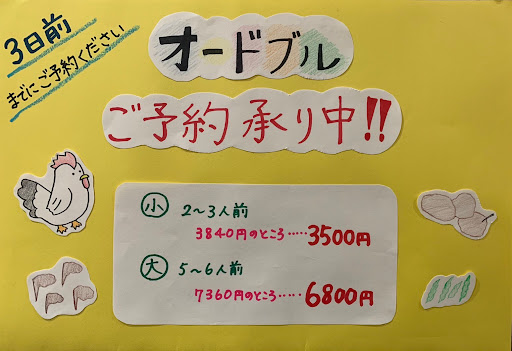 3日前
までにご予約ください
オードブル
ご予約承り中!!
小 2〜3人前
3840円のところ・・・・・3500円
大 5〜6人前
7360円のところ・・・・・6800円